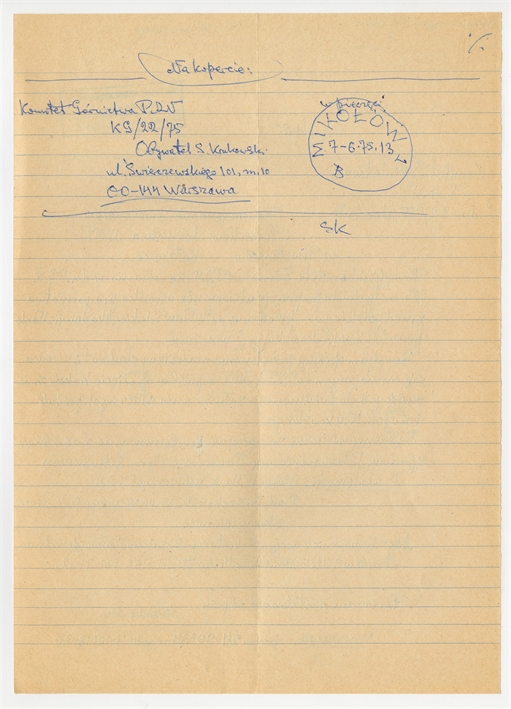 ·/·
Na kopercie:
Komitet Górnictwa PAN
KG/22/75
Obywatel S. Krakowski
ul. Świerczewskiego 101, m. 10
00-144 Warszawa
w pieczęci
MIKOŁÓW 1
7-6.75.13
B
SK